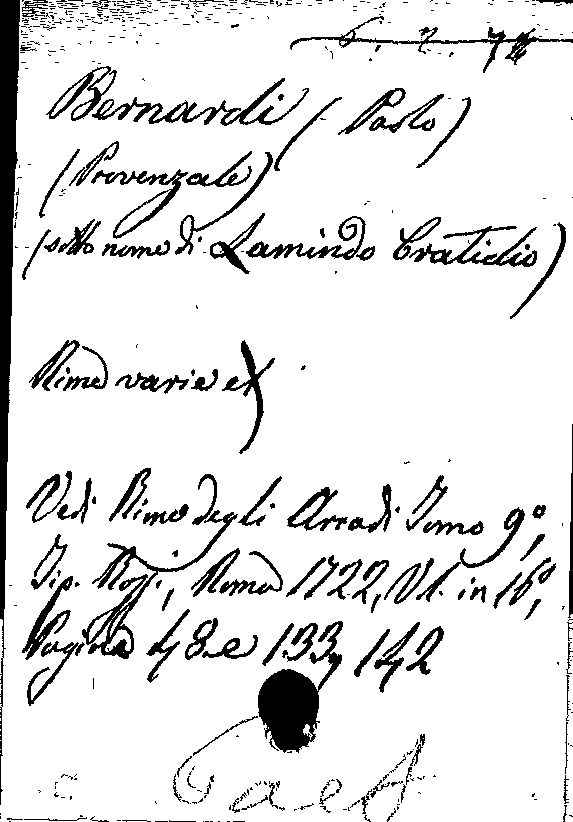 6. 2. 7
Bernardi (Paolo)
(Provenzale)
(sotto nome di Lamindo Cratidio)
Rime varie ex)
Vedi Rime degli Arcadi Tomo 9º,
Tip. Rossi, Roma 1722, V1. in 16º,
Pagina 48. e 133, 142